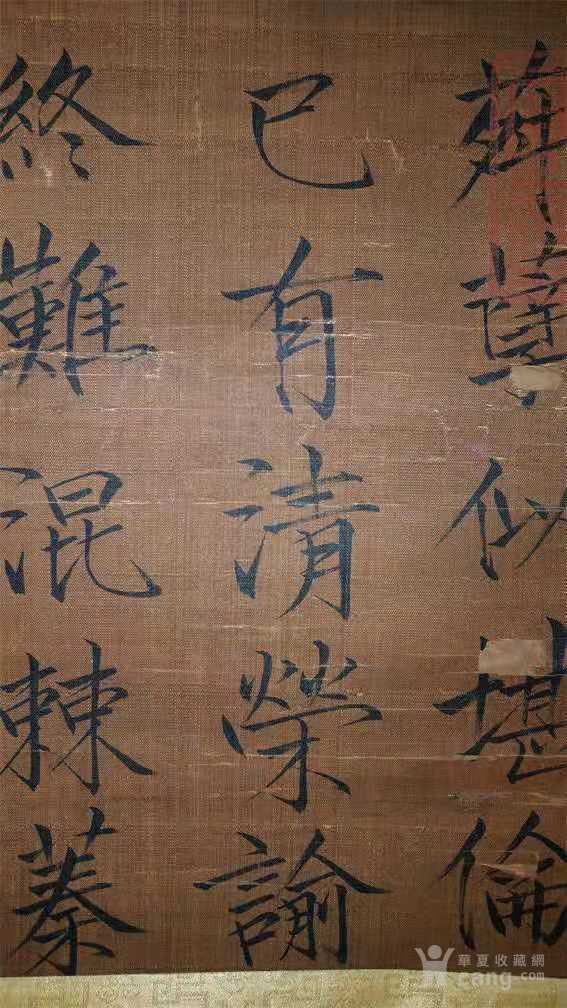 蕚似堪倫
已有清榮諭
終難混棘蓁
華夏收藏網
cang.com